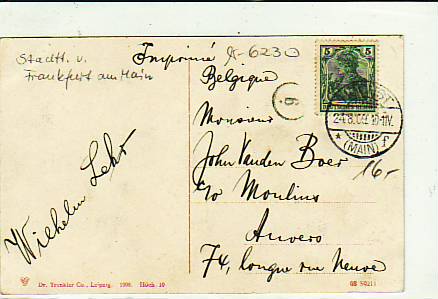 Stadtt. v.
Frankfurt am Main
Imprimé
6230
Belgique
5
5
6
24.8.09. 10-11V.
* (MAIN) f
Monsieur
John Vanden Boer
c/o Moulins
Anvers
74, longue rue Neuve
16,-
Wilhelm Lehr
Dr. Trenkler Co., Leipzig. 1908. Höch. 10